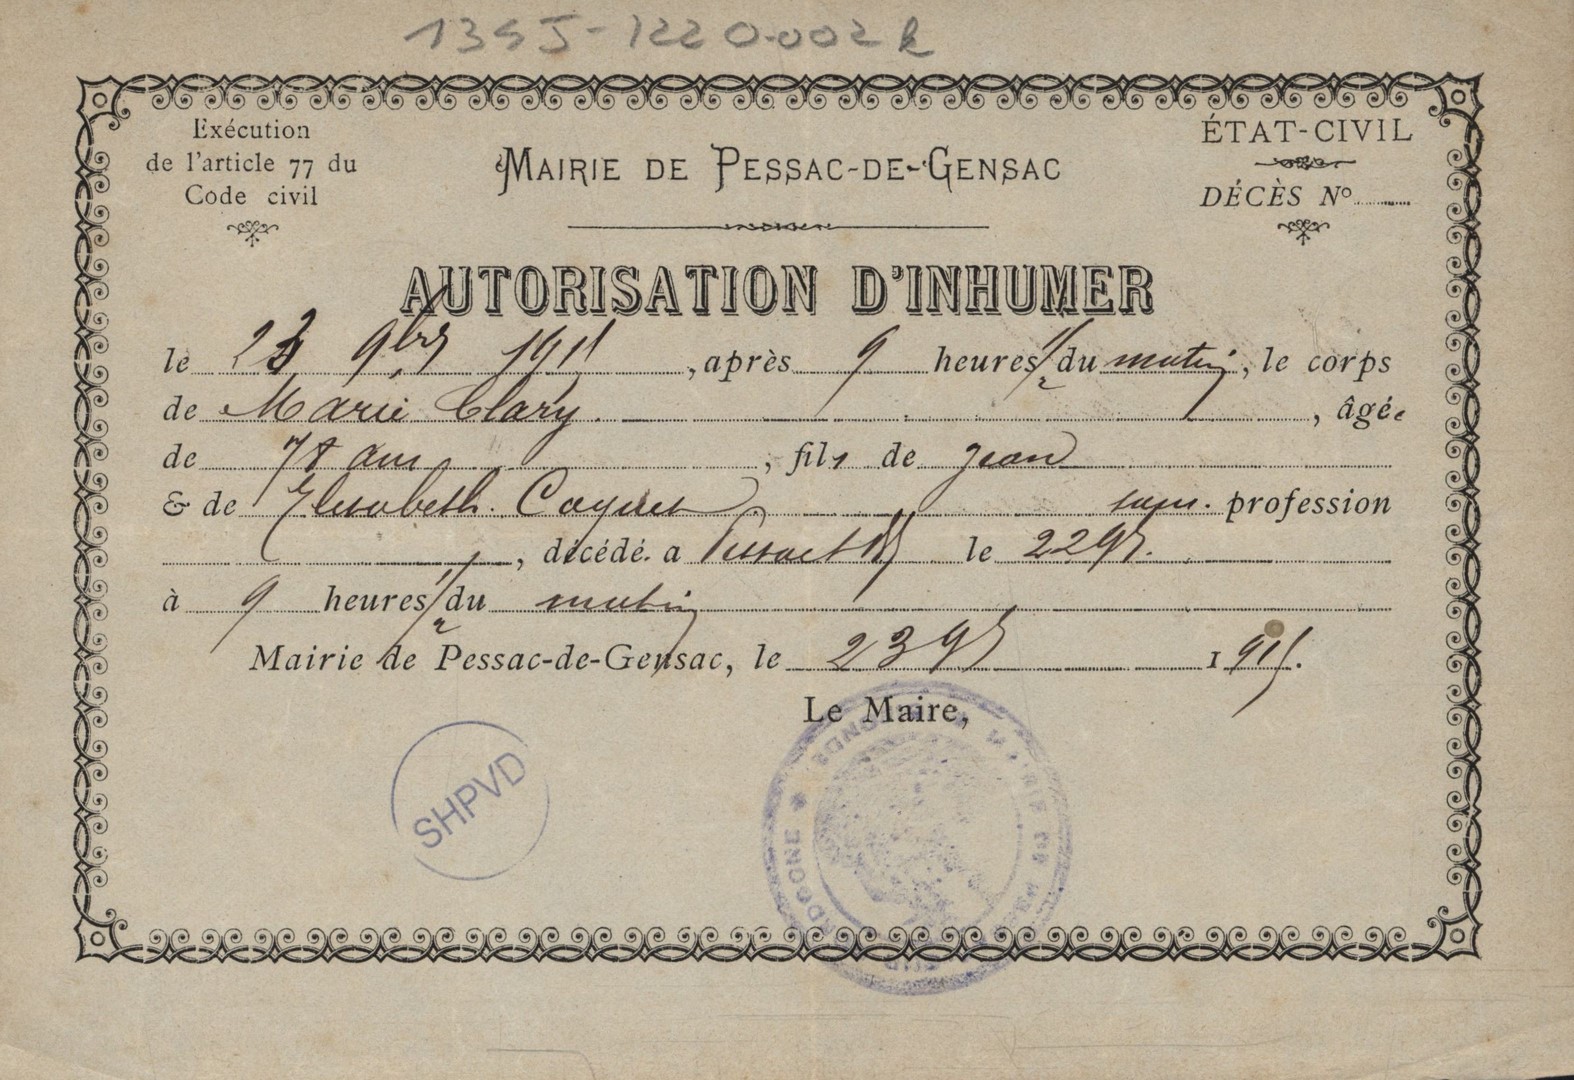 135J-1220.002
Exécution
de l'article 77 du
Code civil
MAIRIE DE PESSAC-DE-GENSAC
ÉTAT-CIVIL
DÉCÈS No
AUTORISATION D'INHUMER
le 23 9bre, après 9 heures 1/2 du matin, le corps
de Marie Clary, âgée
de 78 ans, fils de Jean
& de Elisabeth sans profession
, décédé a le 22 9b
à 9 heures 1/2 du matin
Mairie de Pessac-de-Gensac, le 23 9b 191
Le Maire,
SHPVD
MAIRIE DE